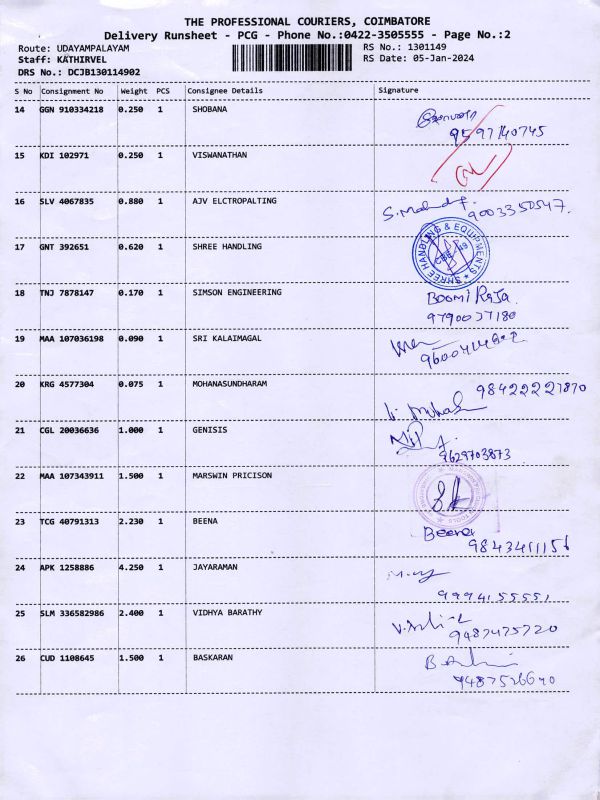 THE PROFESSIONAL COURIERS, COIMBATORE
Delivery Runsheet - PCG - Phone No.:0422-3505555 - Page No.:2
Route: UDAYAMPALAYAM RS No.: 1301149
Staff: KATHIRVEL RS Date: 05-Jan-2024
DRS No.: DCJB130114902
S No Consignment No Weight PCS Consignee Details Signature
14 GGN 910334218 0.250 1 SHOBANA
9597140745
15 KDI 102971 0.250 1 VISWANATHAN
16 SLV 4067835 0.880 1 AJV ELCTROPALTING
9003350547.
17 GNT 392651 0.620 1 SHREE HANDLING
SHREE HANDLING & EQUIPMENTS
18 TNJ 7878147 0.170 1 SIMSON ENGINEERING BOOMI RAJA
9790037180
19 MAA 107036198 0.090 1 SRI KALAIMAGAL
20 KRG 4577304 0.075 1 MOHANASUNDHARAM
21 CGL 20036636 1.000 1 GENISIS
9629703873
22 MAA 107343911 1.500 1 MARSWIN PRICISON
23 TCG 40791313 2.230 1 BEENA Beena
24 APK 1258886 4.250 1 JAYARAMAN
25 SLM 336582986 2.400 1 VIDHYA BARATHY
9487475720
26 CUD 1108645 1.500 1 BASKARAN
9487526640